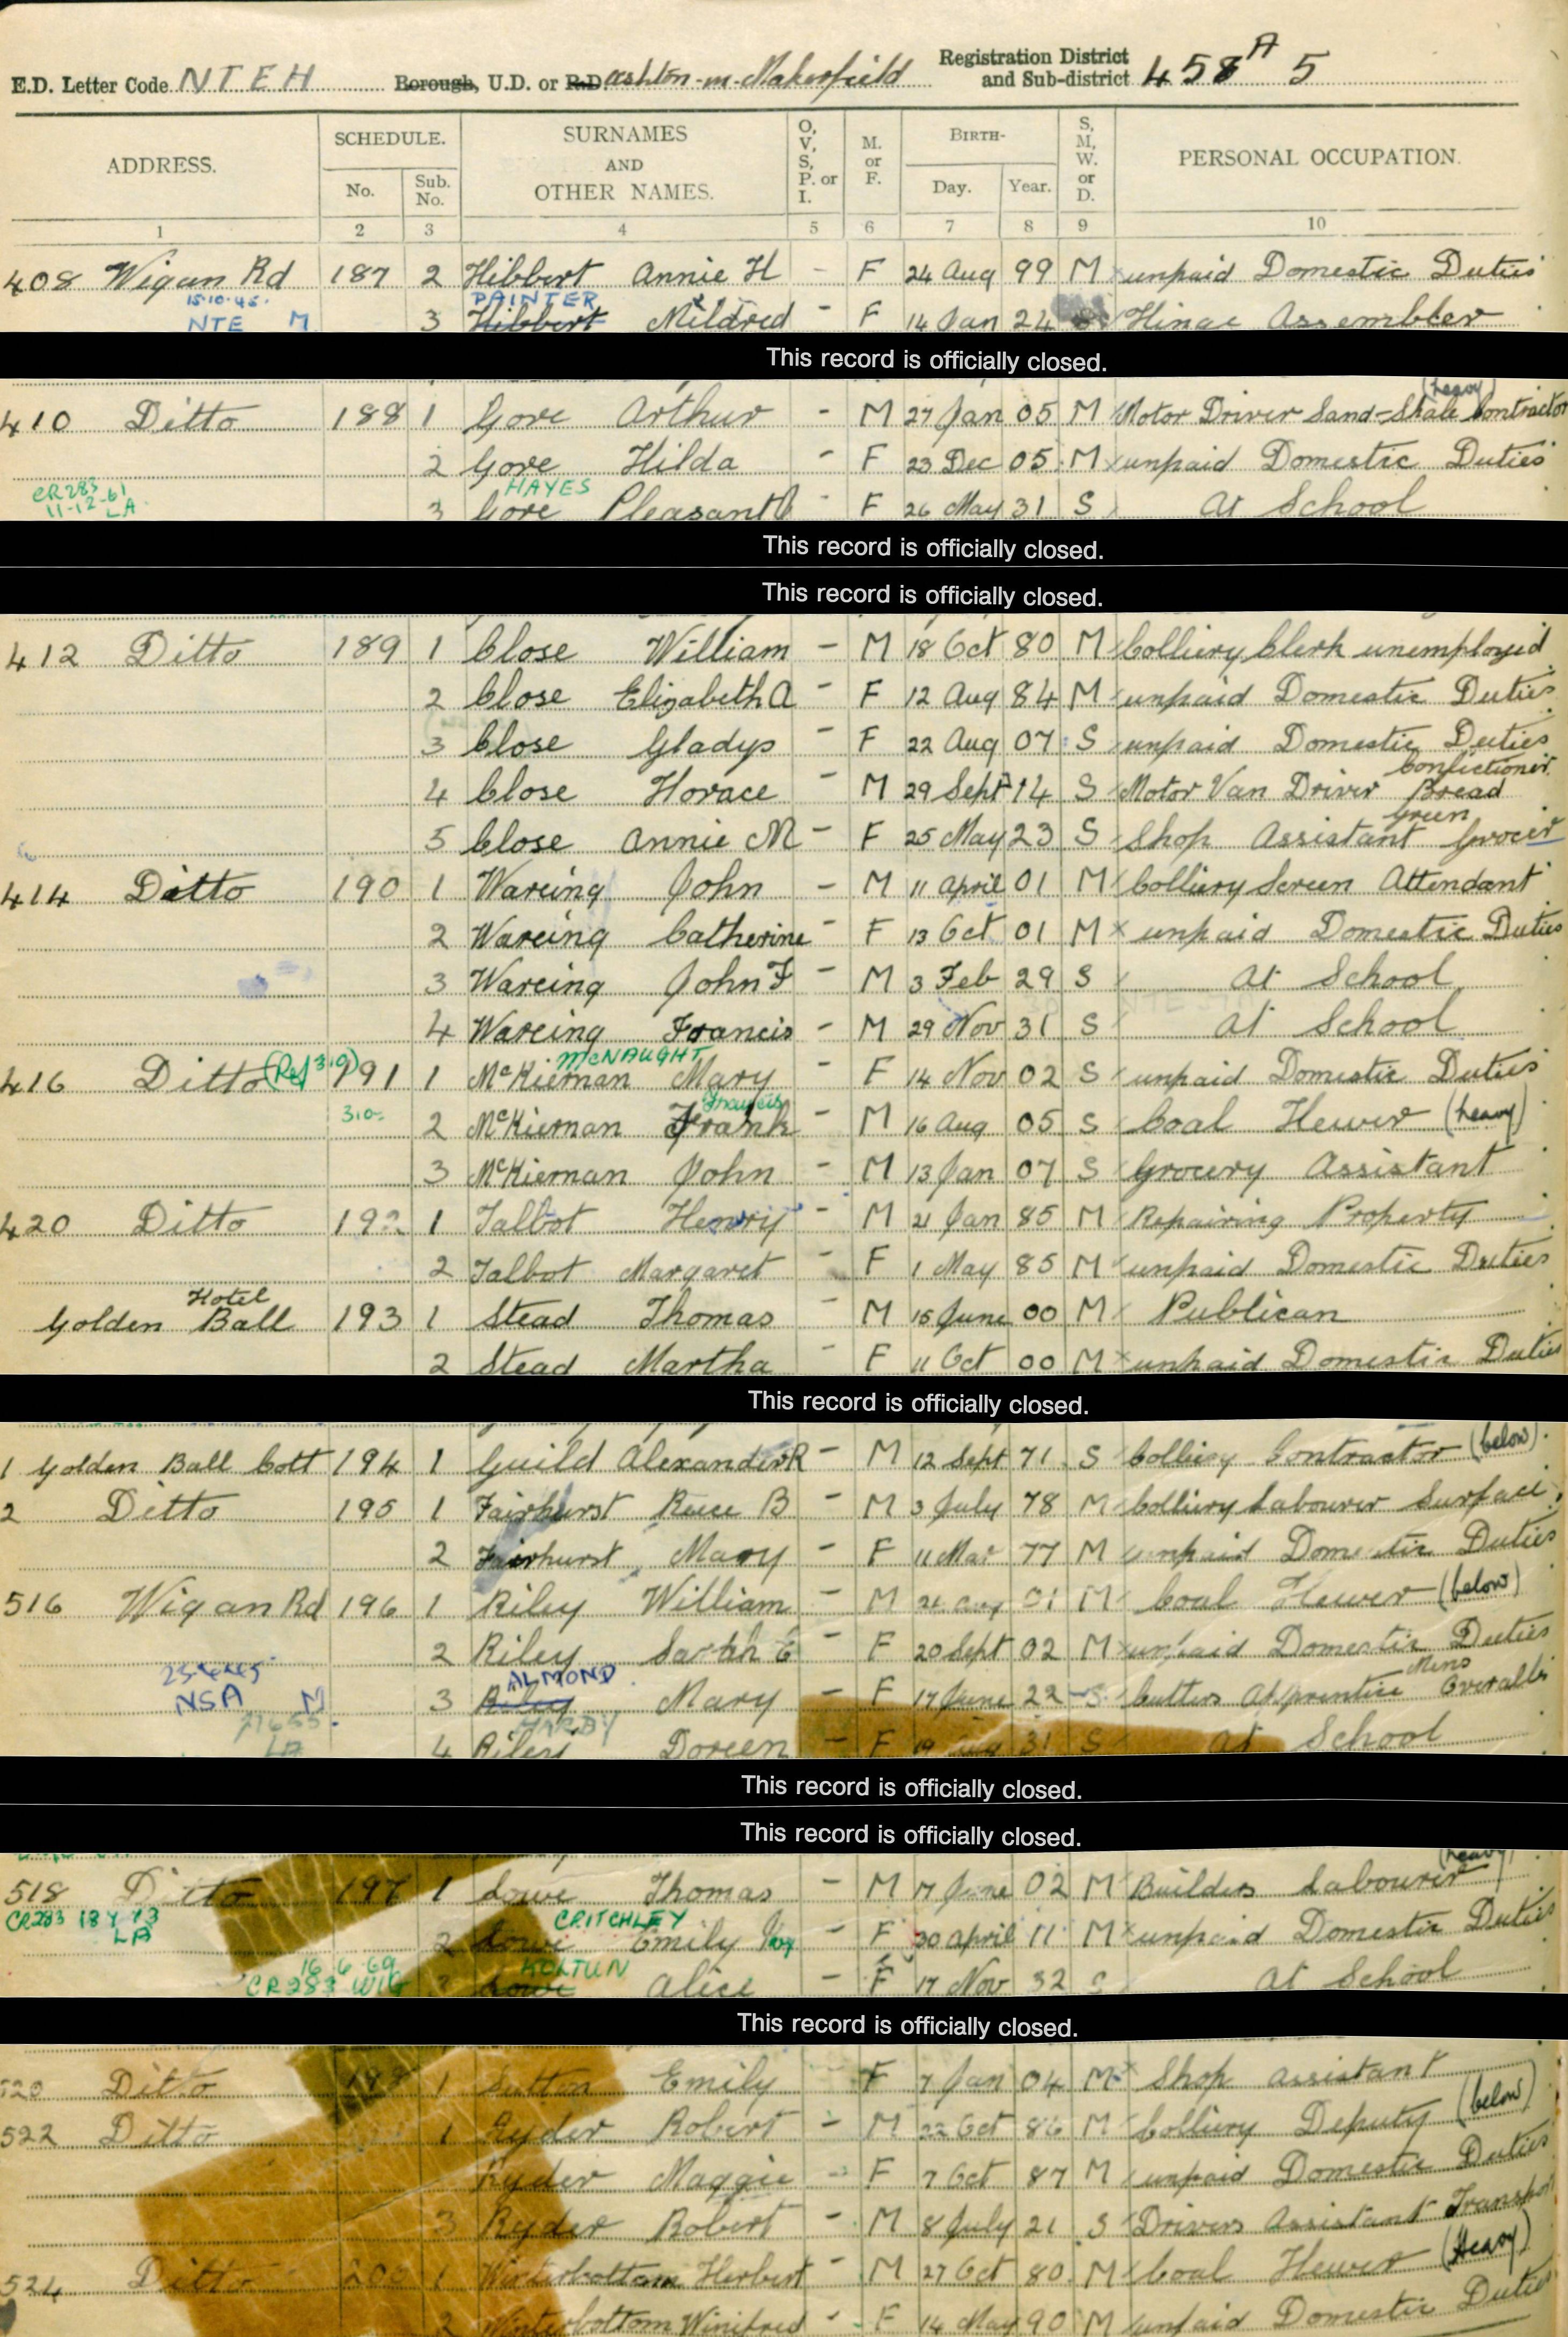 E.D. Letter Code NTEH Borough, U.D. or R.D. Ashton-in-Makerfield Registration District and Sub-district 458 A 5
ADDRESS. SCHEDULE. SURNAMES AND OTHER NAMES. O, V, S, P. or I. M. or F. BIRTH- S, M, W. or D. PERSONAL OCCUPATION.
No. Sub. No. Day. Year.
1 2 3 4 5 6 7 8 9 10
408 Wigan Rd 187 2 Hibbert Annie H - F 24 Aug 99 M unpaid Domestic Duties
15.10.45. PAINTER
NTE M 3 Hibbert Mildred - F 14 Jan 24 Hinge Assembler
This record is officially closed.
(heavy)
410 Ditto 188 1 Gore Arthur - M 27 Jan 05 M Motor Driver Sand-Shale Contractor
2 Gore Hilda - F 23 Dec 05 M unpaid Domestic Duties
CR283 HAYES
11-12-61 LA 3 Gore Pleasant - F 26 May 31 S At School
This record is officially closed.
This record is officially closed.
412 Ditto 189 1 Close William - M 18 Oct 80 M Colliery Clerk unemployed
2 Close Elizabeth A - F 12 Aug 84 M unpaid Domestic Duties
3 Close Gladys - F 22 Aug 07 S unpaid Domestic Duties
Confictioner
4 Close Horace - M 29 Sept 14 S Motor Van Driver Bread
Green
5 Close Annie M - F 25 May 23 S Shop Assistant Grocer
414 Ditto 190 1 Wareing John - M 11 April 01 M Colliery Screen Attendant
2 Wareing Catherine - F 13 Oct 01 M unpaid Domestic Duties
3 Wareing John F - M 3 Feb 29 S At School
4 Wareing Francis - M 29 Nov 31 S At School
McNAUGHT
416 Ditto (Ref 319) 191 1 McKiernan Mary - F 14 Nov 02 S unpaid Domestic Duties
310 Francis
2 McKiernan Frank - M 16 Aug 05 S Coal Hewer (heavy)
3 McKiernan John - M 13 Jan 07 S Grocery Assistant
420 Ditto 192 1 Talbot Henry - M 21 Jan 85 M Repairing Property
2 Talbot Margaret - F 1 May 85 M unpaid Domestic Duties
Hotel
Golden Ball 193 1 Stead Thomas - M 15 June 00 M Publican
2 Stead Martha - F 11 Oct 00 M unpaid Domestic Duties
This record is officially closed.
1 Golden Ball Cott 194 1 Guild Alexander R - M 12 Sept 71 S Colliery Contractor (below)
2 Ditto 195 1 Fairhurst Reece B - M 3 July 78 M Colliery Labourer Surface
2 Fairhurst Mary - F 11 Mar 77 M unpaid Domestic Duties
516 Wigan Rd 196 1 Riley William - M 21 Aug 01 M Coal Hewer (below)
2 Riley Sarah E - F 20 Sept 02 M unpaid Domestic Duties
ALMOND Mens
NSA M 3 Riley Mary - F 17 June 22 S Cutters Apprentice Overalls
HARDY
LA 4 Riley Doreen - F 19 31 S at School
This record is officially closed.
This record is officially closed.
(heavy)
518 Ditto 197 1 Lowe Thomas - M 7 June 02 M Builders Labourer
CR283 18 4 73 CRITCHLEY
LA 2 Lowe Emily - F 30 April 11 M unpaid Domestic Duties
16 6 69 KOLTUN
CR283 WIG 3 Lowe Alice - F 17 Nov 32 S At School
This record is officially closed.
520 Ditto 198 1 Sutton Emily - F 7 Jan 04 M Shop assistant
522 Ditto 1 Ryder Robert - M 22 Oct 86 M Colliery Deputy (below)
Ryder Maggie - F 7 Oct 87 M unpaid Domestic Duties
3 Ryder Robert - M 8 July 21 S Drivers Assistant Transport
524 Ditto 200 1 Winterbottom Herbert - M 27 Oct 80 M Coal Hewer (Heavy)
2 Winterbottom Winifred - F 14 May 90 M unpaid Domestic Duties